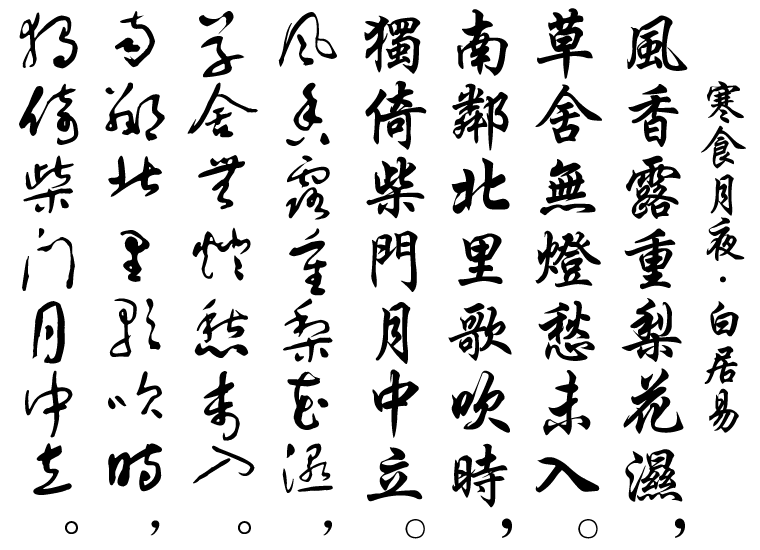 寒食月夜·白居易
風香露重梨花濕，
草舍無燈愁未入。
南鄰北里歌吹時，
獨倚柴門月中立。
风香露重梨花湿，
草舍无灯愁未入。
南邻北里歌吹时，
独倚柴门月中立。